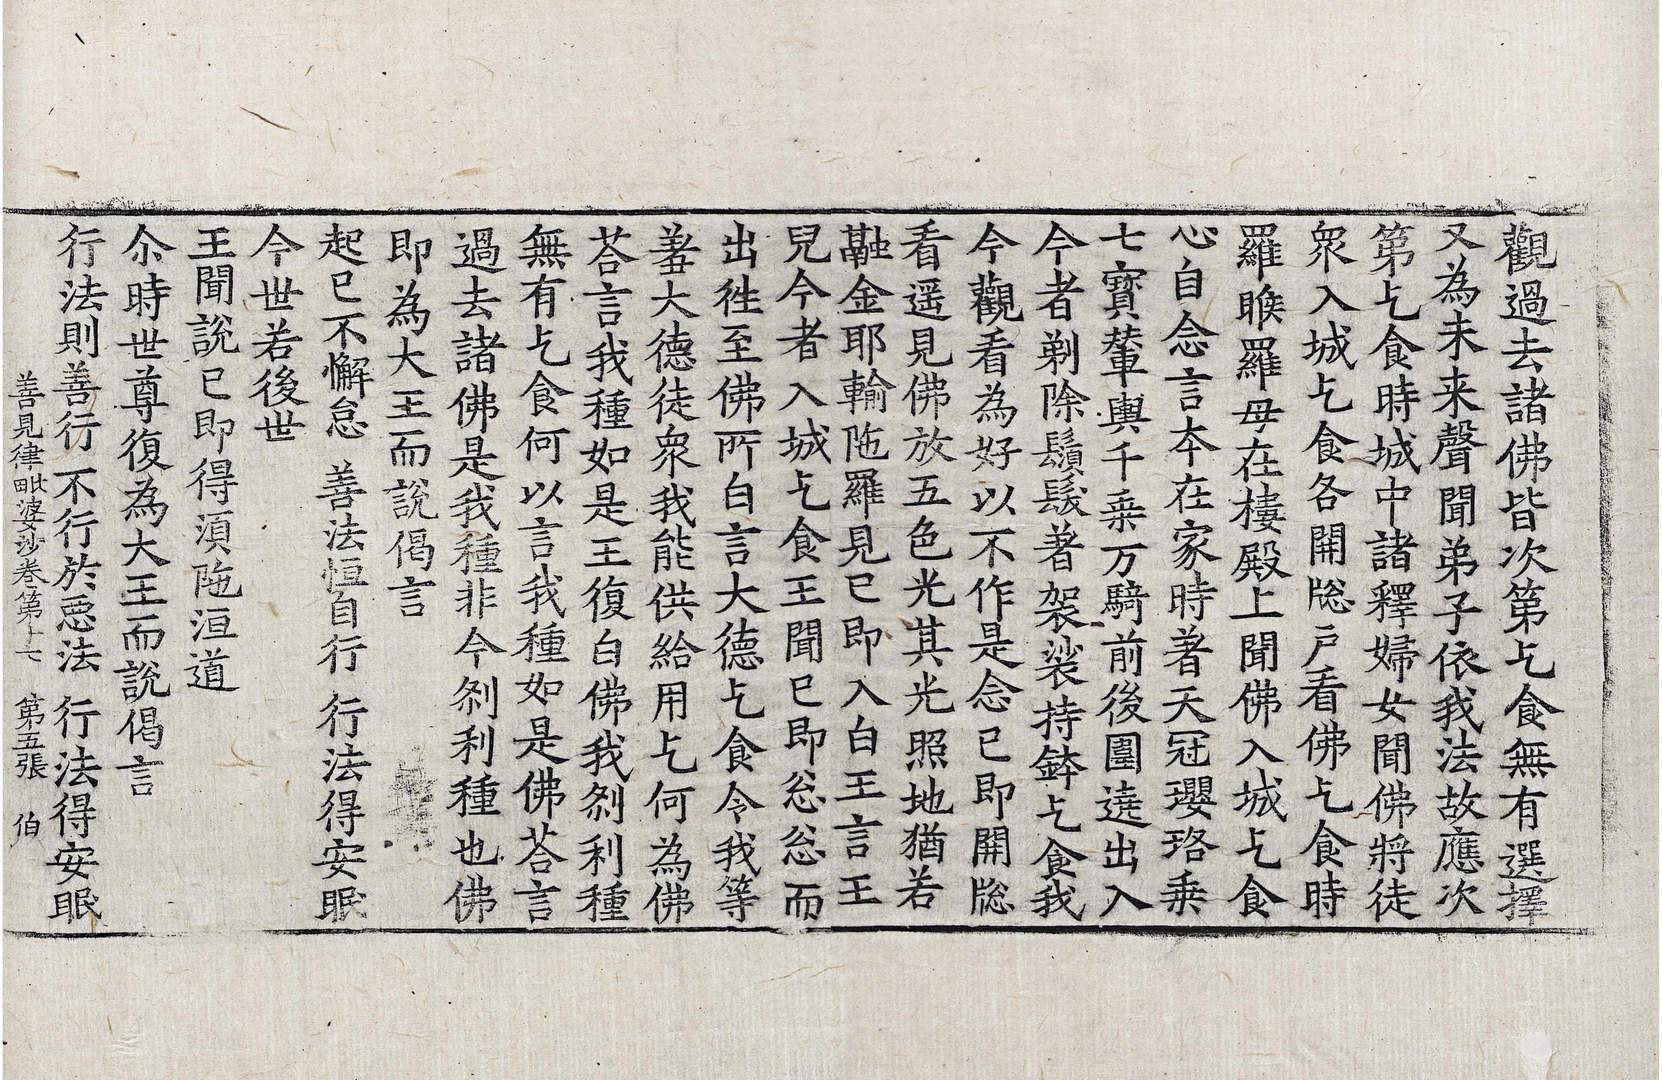 觀過去諸佛皆次第乞食無有選擇
又為未来聲聞弟子依我法故應次
第乞食時城中諸釋婦女聞佛將徒
衆入城乞食各開牎戶看佛乞食時
羅睺羅母在樓殿上聞佛入城乞食
心自念言本在家時著天冠瓔珞乗
七寶輦輿千乗万騎前後圍遶出入
今者剃除鬚髮著袈裟持鉢乞食我
今觀看為好以不作是念已即開牎
看遥見佛放五色光其光照地猶若
融金耶輸陁羅見已即入白王言王
兒今者入城乞食王聞已即忩忩而
出徃至佛所白言大德乞食令我等
羞大德徒衆我能供給用乞何為佛
荅言我種如是王復白佛我剎利種
無有乞食何以言我種如是佛荅言
過去諸佛是我種非今剎利種也佛
即為大王而說偈言
起已不懈怠 善法恒自行 行法得安眠
今世若後世
王聞說已即得湏陁洹道
尒時世尊復為大王而說偈言
行法則善行 不行於惡法 行法得安眠
善見律毗婆沙卷第十七 第五張 伯